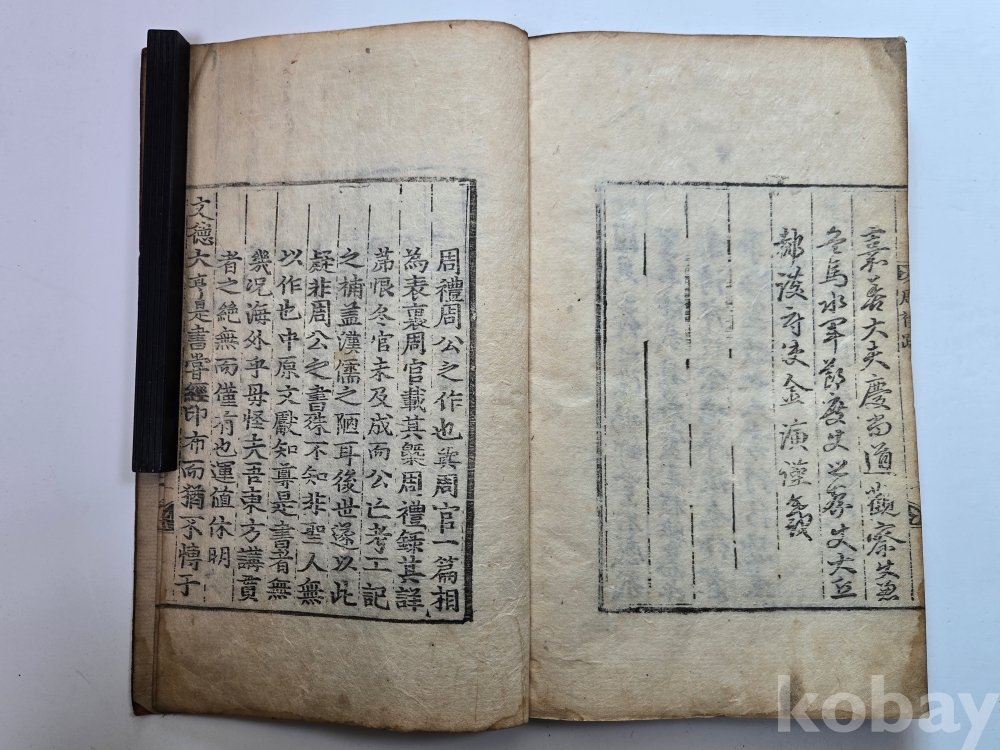 嘉善大夫慶尚道觀察使兼
兵馬水軍節度使巡察使大丘
都護府使金演謹跋
周禮周公之作也與周官一篇相
為表裏周官載其槩周禮錄其詳
第恨冬官未及成而公亡考工記
之補盖漢儒之陋耳後世遂以此
疑非周公之書殊不知非聖人無
以作也中原文獻知尊是書者無
幾况海外乎毋怪夫吾東方講貫
者之絶無而僅有也運值休明
文德大享是書嘗經印布而猶不慱于
kobay